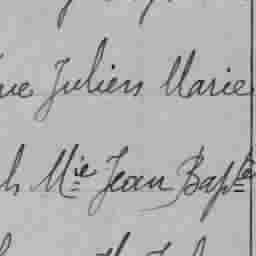 ue Julien Marie
h Mie Jean Bapte